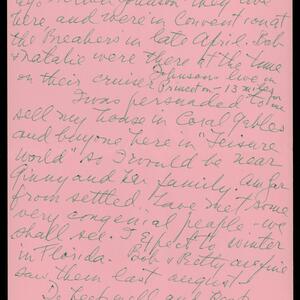 Johnson. They live
here and were in Convention at
the Breakers in late April. Bob
& Natalie were there at the time
on their cruiser. Johnsons live in
Princeton - 13 miles
to me
I was persuaded to
sell my house in Coral Gables
and buy one here in "Leisure
World" so I would be near
Ginny and her family. Am far
from settled. Have met some
very congenial people - we
shall see. I expect to winter
in Florida. Bob & Betty are fine
saw them last august.
keep well and